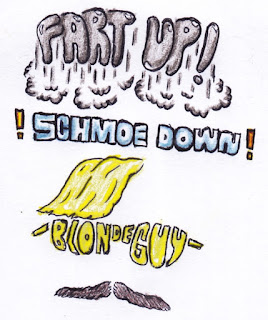 FART UP!
! SCHMOE DOWN !
-BLONDEGUY-